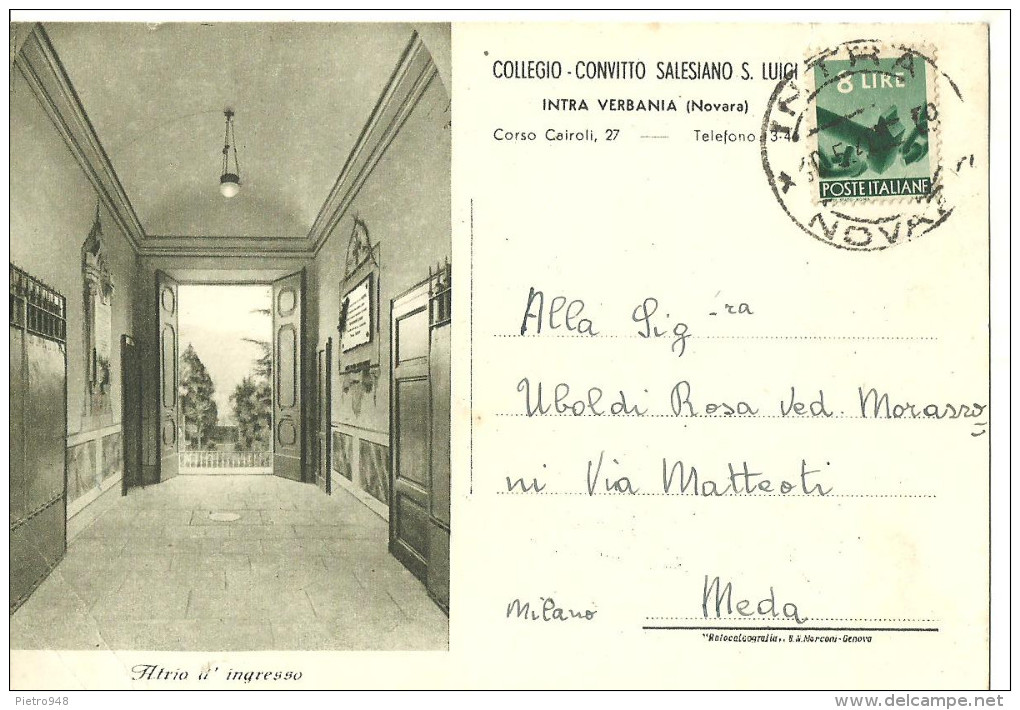 COLLEGIO - CONVITTO SALESIANO S. LUIGI
INTRA VERBANIA (Novara)
Corso Cairoli, 27 — Telefono 3-4
8 LIRE
POSTE ITALIANE
* INTRA *
NOVARA
Alla Sig-ra
Uboldi Rosa Ved. Morazzo
ni Via Matteoti
Milano Meda
"Rotocalcografia" S.A. Marconi-Genova
Atrio d' ingresso
Pietro948
delcampe.net